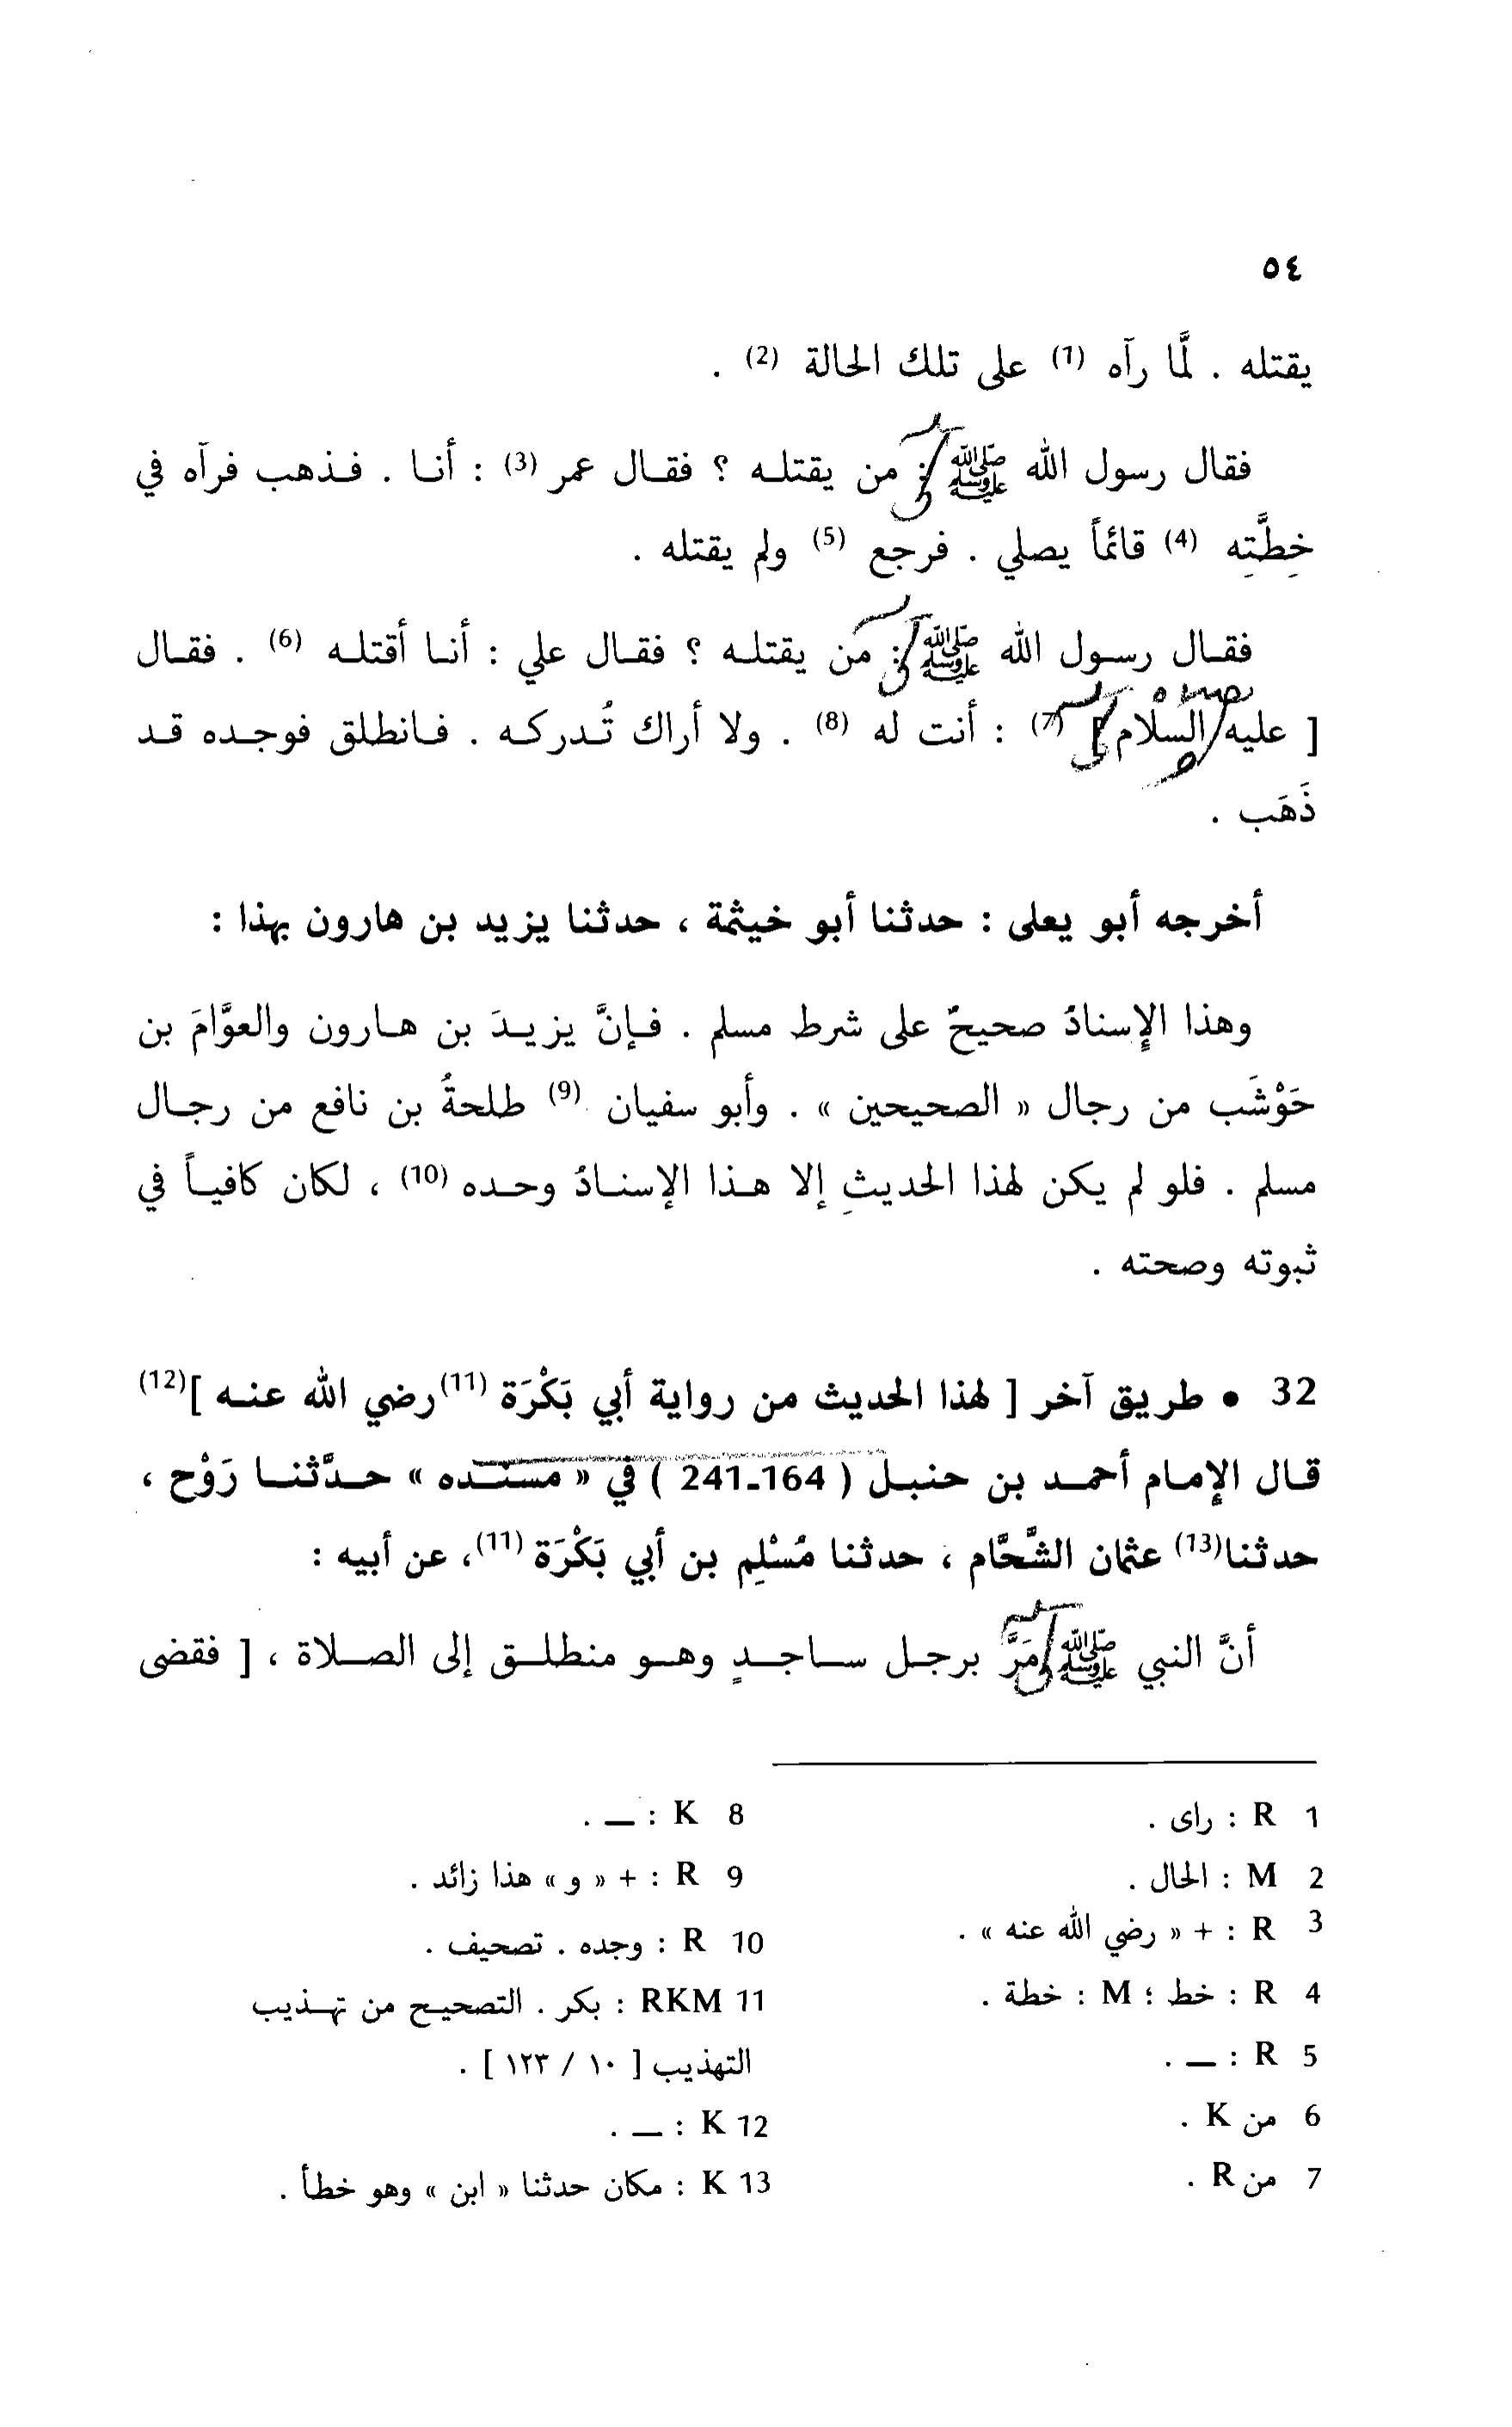 ٥٤
يقتله . لَّا رآه (1) على تلك الحالة (2) .
فقال رسول الله ﷺ : من يقتلـه ؟ فقـال عمر (3) : أنـا . فـذهب فرآه في
خِطَّتِه (4) قائماً يصلي . فرجع (5) ولم يقتله .
فقـال رسـول الله ﷺ : من يقتلـه ؟ فقـال علي : أنـا أقتلـه (6) . فقـال
[ عليه السلام ] (7) : أنت له (8) . ولا أراك تُـدركـه . فـانطلق فوجـده قـد
ذَهَب .
أخرجه أبو يعلى : حدثنا أبو خيثمة ، حدثنا يزيد بن هارون بهذا :
وهذا الإسنادُ صحيحٌ على شرط مسلم . فـإنَّ يزيـدَ بن هـارون والعوَّامَ بن
حَوْشَب من رجال « الصحيحين » . وأبو سفيان (9) طلحةُ بن نافع من رجـال
مسلم . فلو لم يكن لهذا الحديثِ إلا هـذا الإسنـادُ وحـده (10) ، لكان كافيـاً في
ثبوته وصحته .
32 • طريق آخر [ لهذا الحديث من رواية أبي بَكْرَة (11) رضي الله عنـه ] (12)
قـال الإمـام أحمـد بن حنبـل ( 164ـ241 ) في « مسنـده » حـدَّثنـا رَوْح ،
حدثنا (13) عثمان الشَّحَّام ، حدثنا مُسْلِم بن أبي بَكْرَة (11)، عن أبيه :
أنَّ النبي ﷺ مَرَّ برجـل سـاجـدٍ وهـو منطلـق إلى الصـلاة ، [ فقضى
1 R : راى .
2 M : الحال .
3 R : + « رضي الله عنه » .
4 R : خط ؛ M : خطة .
5 R : ـ .
6 من K .
7 من R .
8 K : ـ .
9 R : + « و » هذا زائد .
10 R : وجده . تصحيف .
11 RKM : بكر . التصحيـح من تهـذيب
التهذيب [ ١٠ / ١٢٣ ] .
12 K : ـ .
13 K : مكان حدثنا « ابن » وهو خطأ .